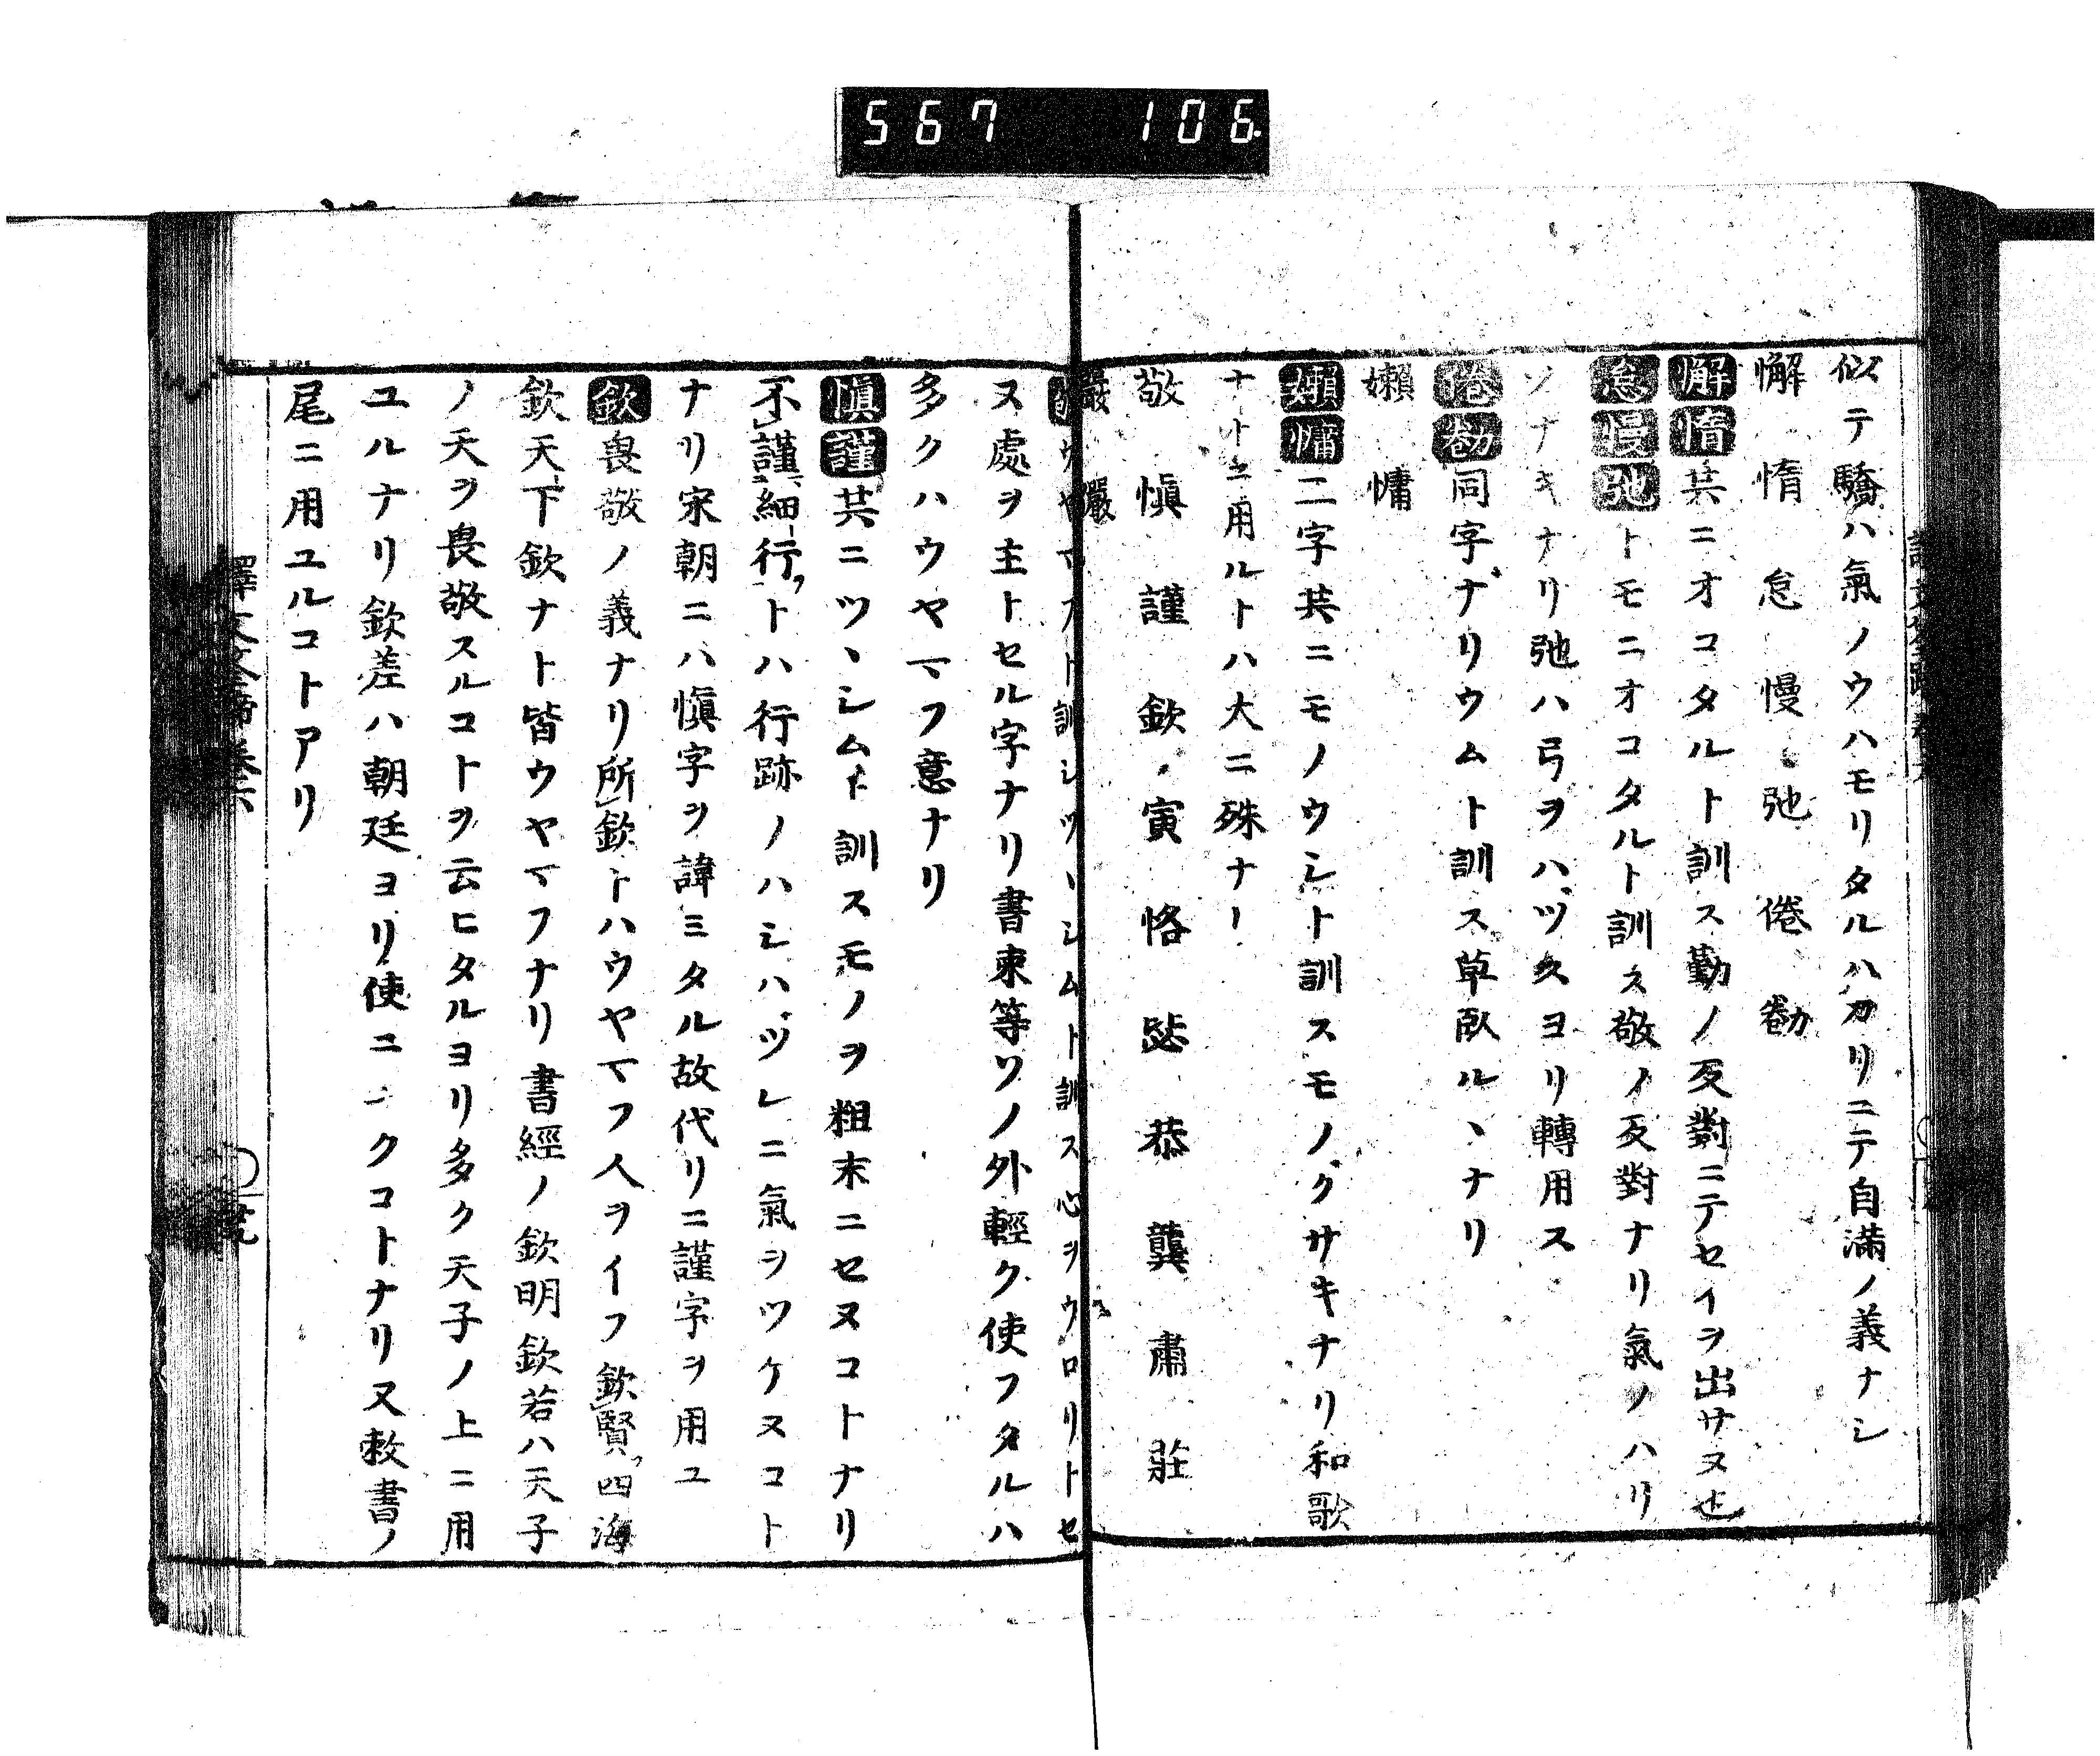 567 106
似テ驕ハ氣ノウハモリタルハカリニテ自滿ノ義ナシ
懈 惰 怠 慢 弛 倦 勌
懈惰共ニオコタルト訓ス勤ノ反對ニテセイヲ出サヌ也
怠慢弛トモニオコタルト訓ス敬ノ反對ナリ氣ノハリ
ツナキナリ弛ハ弓ヲハヅスヨリ轉用ス
倦勌同字ナリウムト訓ス草臥ルヽナリ
嬾 慵
嬾慵二字共ニモノウシト訓スモノグサキナリ和歌
ナトニ用ルトハ大ニ殊ナリ
敬 愼 謹 欽 寅 恪 毖 恭 龔 肅 莊
嚴 儼
敬ウヤマフト訓シツヽシムト訓ス心ヲウロリトセ
ヌ處ヲ主トセル字ナリ書柬等ソノ外輕ク使フタルハ
多クハウヤマフ意ナリ
愼謹共ニツヽシムト訓スモノヲ粗末ニセヌコトナリ
不謹細行トハ行跡ノハシハヅレニ氣ヲツケヌコト
ナリ宋朝ニハ愼字ヲ諱ミタル故代リニ謹字ヲ用ユ
欽畏敬ノ義ナリ所欽トハウヤマフ人ヲイフ欽賢四海
欽天下欽ナト皆ウヤマフナリ書經ノ欽明欽若ハ天子
ノ天ヲ畏敬スルコトヲ云ヒタルヨリ多ク天子ノ上ニ用
ユルナリ欽差ハ朝廷ヨリ使ニユクコトナリ又敕書ノ
尾ニ用ユルコトアリ
譯文筌蹄卷六